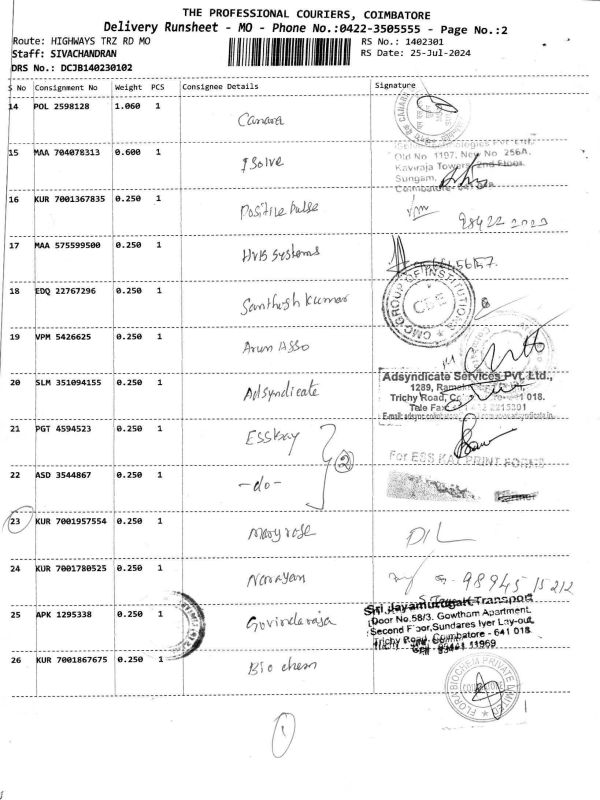 THE PROFESSIONAL COURIERS, COIMBATORE
Delivery Runsheet - MO - Phone No.:0422-3505555 - Page No.:2
Route: HIGHWAYS TRZ RD MO
Staff: SIVACHANDRAN
DRS No.: DCJB140230102
RS No.: 1402301
RS Date: 25-Jul-2024
S No Consignment No Weight PCS Consignee Details Signature
14 POL 2598128 1.060 1 Canara
15 MAA 704078313 0.600 1 Isolve
Old No 1197, New No 256A,
Kaviraja Towers, 2nd Floor,
Sungam,
Coimbatore
16 KUR 7001367835 0.250 1 Positive pulse
17 MAA 575599500 0.250 1 HVB Systems
CMC GROUP OF INSTITUTIONS
18 EDQ 22767296 0.250 1 Santhosh Kumar
19 VPM 5426625 0.250 1 Arun Asso
20 SLM 351094155 0.250 1 Adsyndicate
Adsyndicate Services Pvt. Ltd.,
1289,
Trichy Road, 018.
Tele Fax 2215301
21 PGT 4594523 0.250 1 ESSkay
For ESS KAY PRINT FORMS
22 ASD 3544867 0.250 1 -do- 2
Partner
23 KUR 7001957554 0.250 1 Maryrose D/L
24 KUR 7001780525 0.250 1 Narayan 98945 15212
25 APK 1295338 0.250 1 Govindaraja
Sri Jayamurugan Transport
Door No.58/3. Gowtham Apartment.
Second Floor,Sundares Iyer Lay-out,
Trichy Road, Coimbatore - 641 018
26 KUR 7001867675 0.250 1 Bio chem
FLORA BIOCHEM PRIVATE LIMITED
COIMBATORE
1